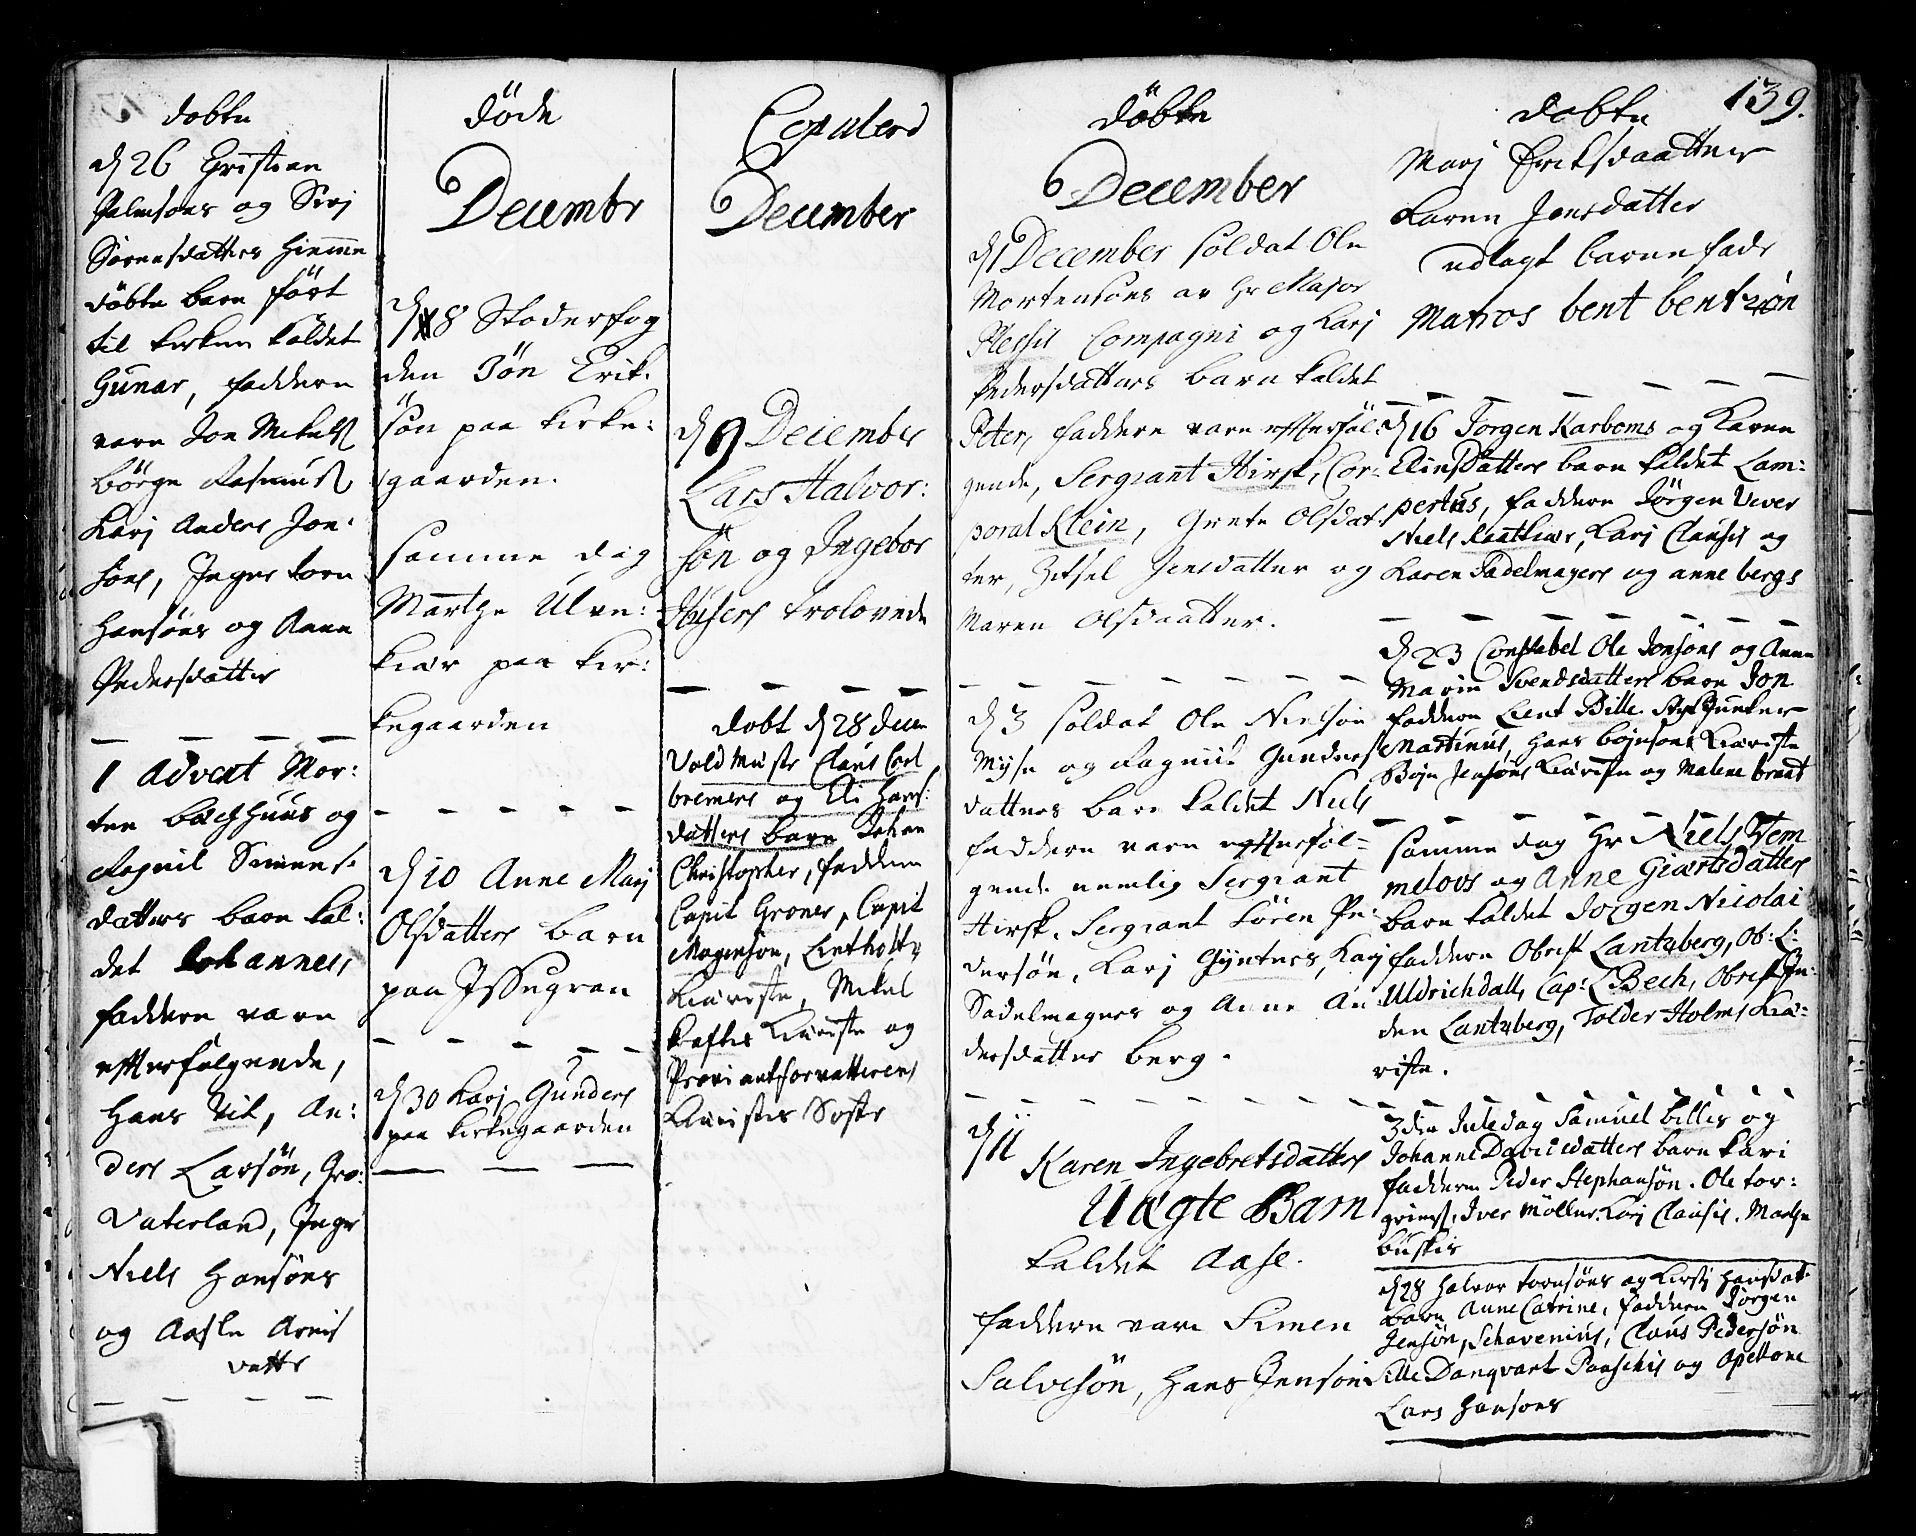 døbte
d 26 Christian
Palmsøns og Sirj
Sørensdatters hiemme
døbte barn ført
til kirken kaldet
Gunar, faddere
vare Jon Mikels
Børge Rasmus
Karj Anders Jon-
søns, Inger torn
Hansøns og Anne
Pedersdatter
1 Advent Mor:
ten Bachhuus og
Ragnil Simens-
datters barn kal:
det Johannes,
faddere vare
efterfølgende,
Hans Vit, An:
ders Larsøn, Gro:
Vaterland, Inger
Niels Hansøns
og Aasle Arnis
datter
døde
Decembr
d 8 Skoderfog
den Jøn Erik-
søn paa kirke:
gaarden.
samme dag
Marthe Ulve:
kiær paa kir:
kegaarden
d 10 Anne Marj
Olsdatters barn
paa Issugran
d 30 Karj Gunders
paa kirkegaarden
Copulerd
December
d 9 December
Lars Halvor:
søn og Ingebor
Husers trolovede
døbt d 28 decem
Voldmester Claus Carl
bremers og Eli Hans:
datters barn Johan
Christopher, faddere
Capit Groner, Capit
Mogenson, Lintholtz
Kiæreste, Mikel
Kafles Kiæreste og
Proviantforvalterens
Kiærestes Søster
139.
døbte
December
d 1 December soldat Ole
Mortensøns av Hr Major
Plessis Compagni og Karj
Pedersdatters barn kaldet
Peter, faddere vare efterføl-
gende, Sergiant Hirsk, Cor-
poral Klein, Grete Olsdat:
ter, Zitsel Jensdatter og
Maren Olsdaatter.
d 3 soldat Ole Nielsøn
Myse og Ragnil Gunders
datters barn kaldet Niels
faddere vare efterføl-
gende nemlig Sergiant
Hirsk, Sergiant Søren Pe:
dersøn, Karj Gynters, Karj
Sadelmagers og Anne An
dersdatter berg.
d 11
Karen Ingebretsdatters
Uægte Barn
kaldet Aase.
faddere vare Simen
Salvesøn, Hans Jensøn
døbte
Marj Eriksdaatter
Karen Jensdatter
udlagt barnefadr
Matros bent bentzøn
d 16 Jorgen Karboms og Karen
Elinsdatters barn kaldet Lam:
pertus, faddere Jørgen Vever
Niels Raatkiær, Karj Clausis og
Karen Sadelmagers og anne bergs
d 23 Constabel Ole Jonsøns og Anne
Marie Svendsdatters barn Jon
faddere Lient Bille. Styk Junker
Martinus, Hans bojnsøns Kiæreste
Bojn Jensøns Kiæreste og Malene brant
samme dag Hr Niels Tem
meloos og Anne Giærtsdatters
barn kaldet Jorgen Nicolai
faddere Obrist Lantzberg, Ob: L:
Uldrichdall, Cap: L Bech, Obrist In-
den Lantzberg, Tolder Holms Kiæ-
riste.
3die Juledag Samuel billes og
Johanne Davidsdatters barn kari
faddere Peder Stephansøn. Ole tor:
grims, Iver Møller. Karj Clausis. Marthe
buskis
d 28 Halvor tornsøns og Kirstj Hansdat-
barn Anne Catrine, faddere Jørgen
Jensøn, Schavenius, Claus Pedersøn
Sille Danqvart Paaschis og Apellone
Lars Hansøns